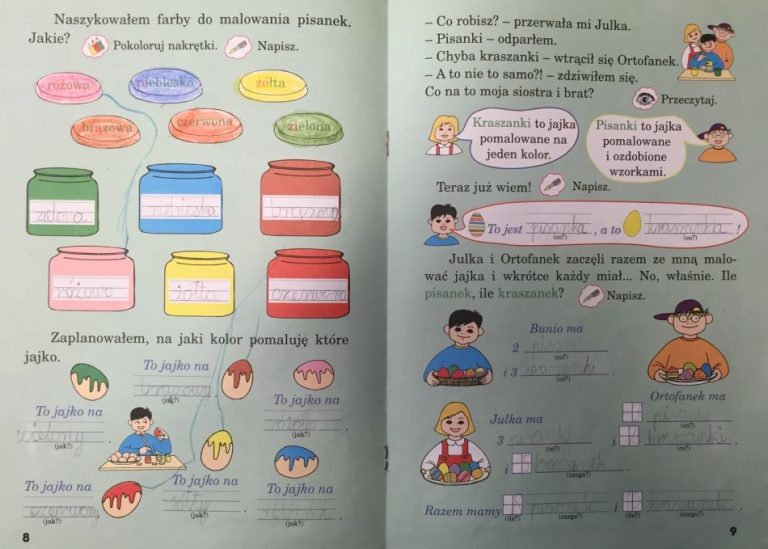 Naszykowałem farby do malowania pisanek.
Jakie? Pokoloruj nakrętki. Napisz.
różowa niebieska żółta
brązowa czerwona zielona
zielona niebieska brązowa
różowa żółta czerwona
Zaplanowałem, na jaki kolor pomaluję które
jajko.
To jajko na
brązowy
(jak?)
To jajko na
zielony
(jak?)
To jajko na
różowo
(jak?)
To jajko na
czerwony
(jak?)
To jajko na
(jak?)
To jajko na
(jak?)
8
– Co robisz? – przerwała mi Julka.
– Pisanki – odparłem.
– Chyba kraszanki – wtrącił się Ortofanek.
– A to nie to samo?! – zdziwiłem się.
Co na to moja siostra i brat? Przeczytaj.
Kraszanki to jajka
pomalowane na
jeden kolor.
Pisanki to jajka
pomalowane
i ozdobione
wzorkami.
Teraz już wiem! Napisz.
To jest pisanka, a to kraszanka!
(co?) (co?)
Julka i Ortofanek zaczęli razem ze mną malo-
wać jajka i wkrótce każdy miał... No, właśnie. Ile
pisanek, ile kraszanek? Napisz.
Bunio ma
2 pisanki
(co?)
i 3 kraszanki
(co?)
Ortofanek ma
pisanki
(co?)
i kraszanki.
(co?)
Julka ma
3 pisanki
(co?)
i kraszanek.
(czego?)
Razem mamy pisanek i
(ile?) (czego?) (ile?) (czego?)
9